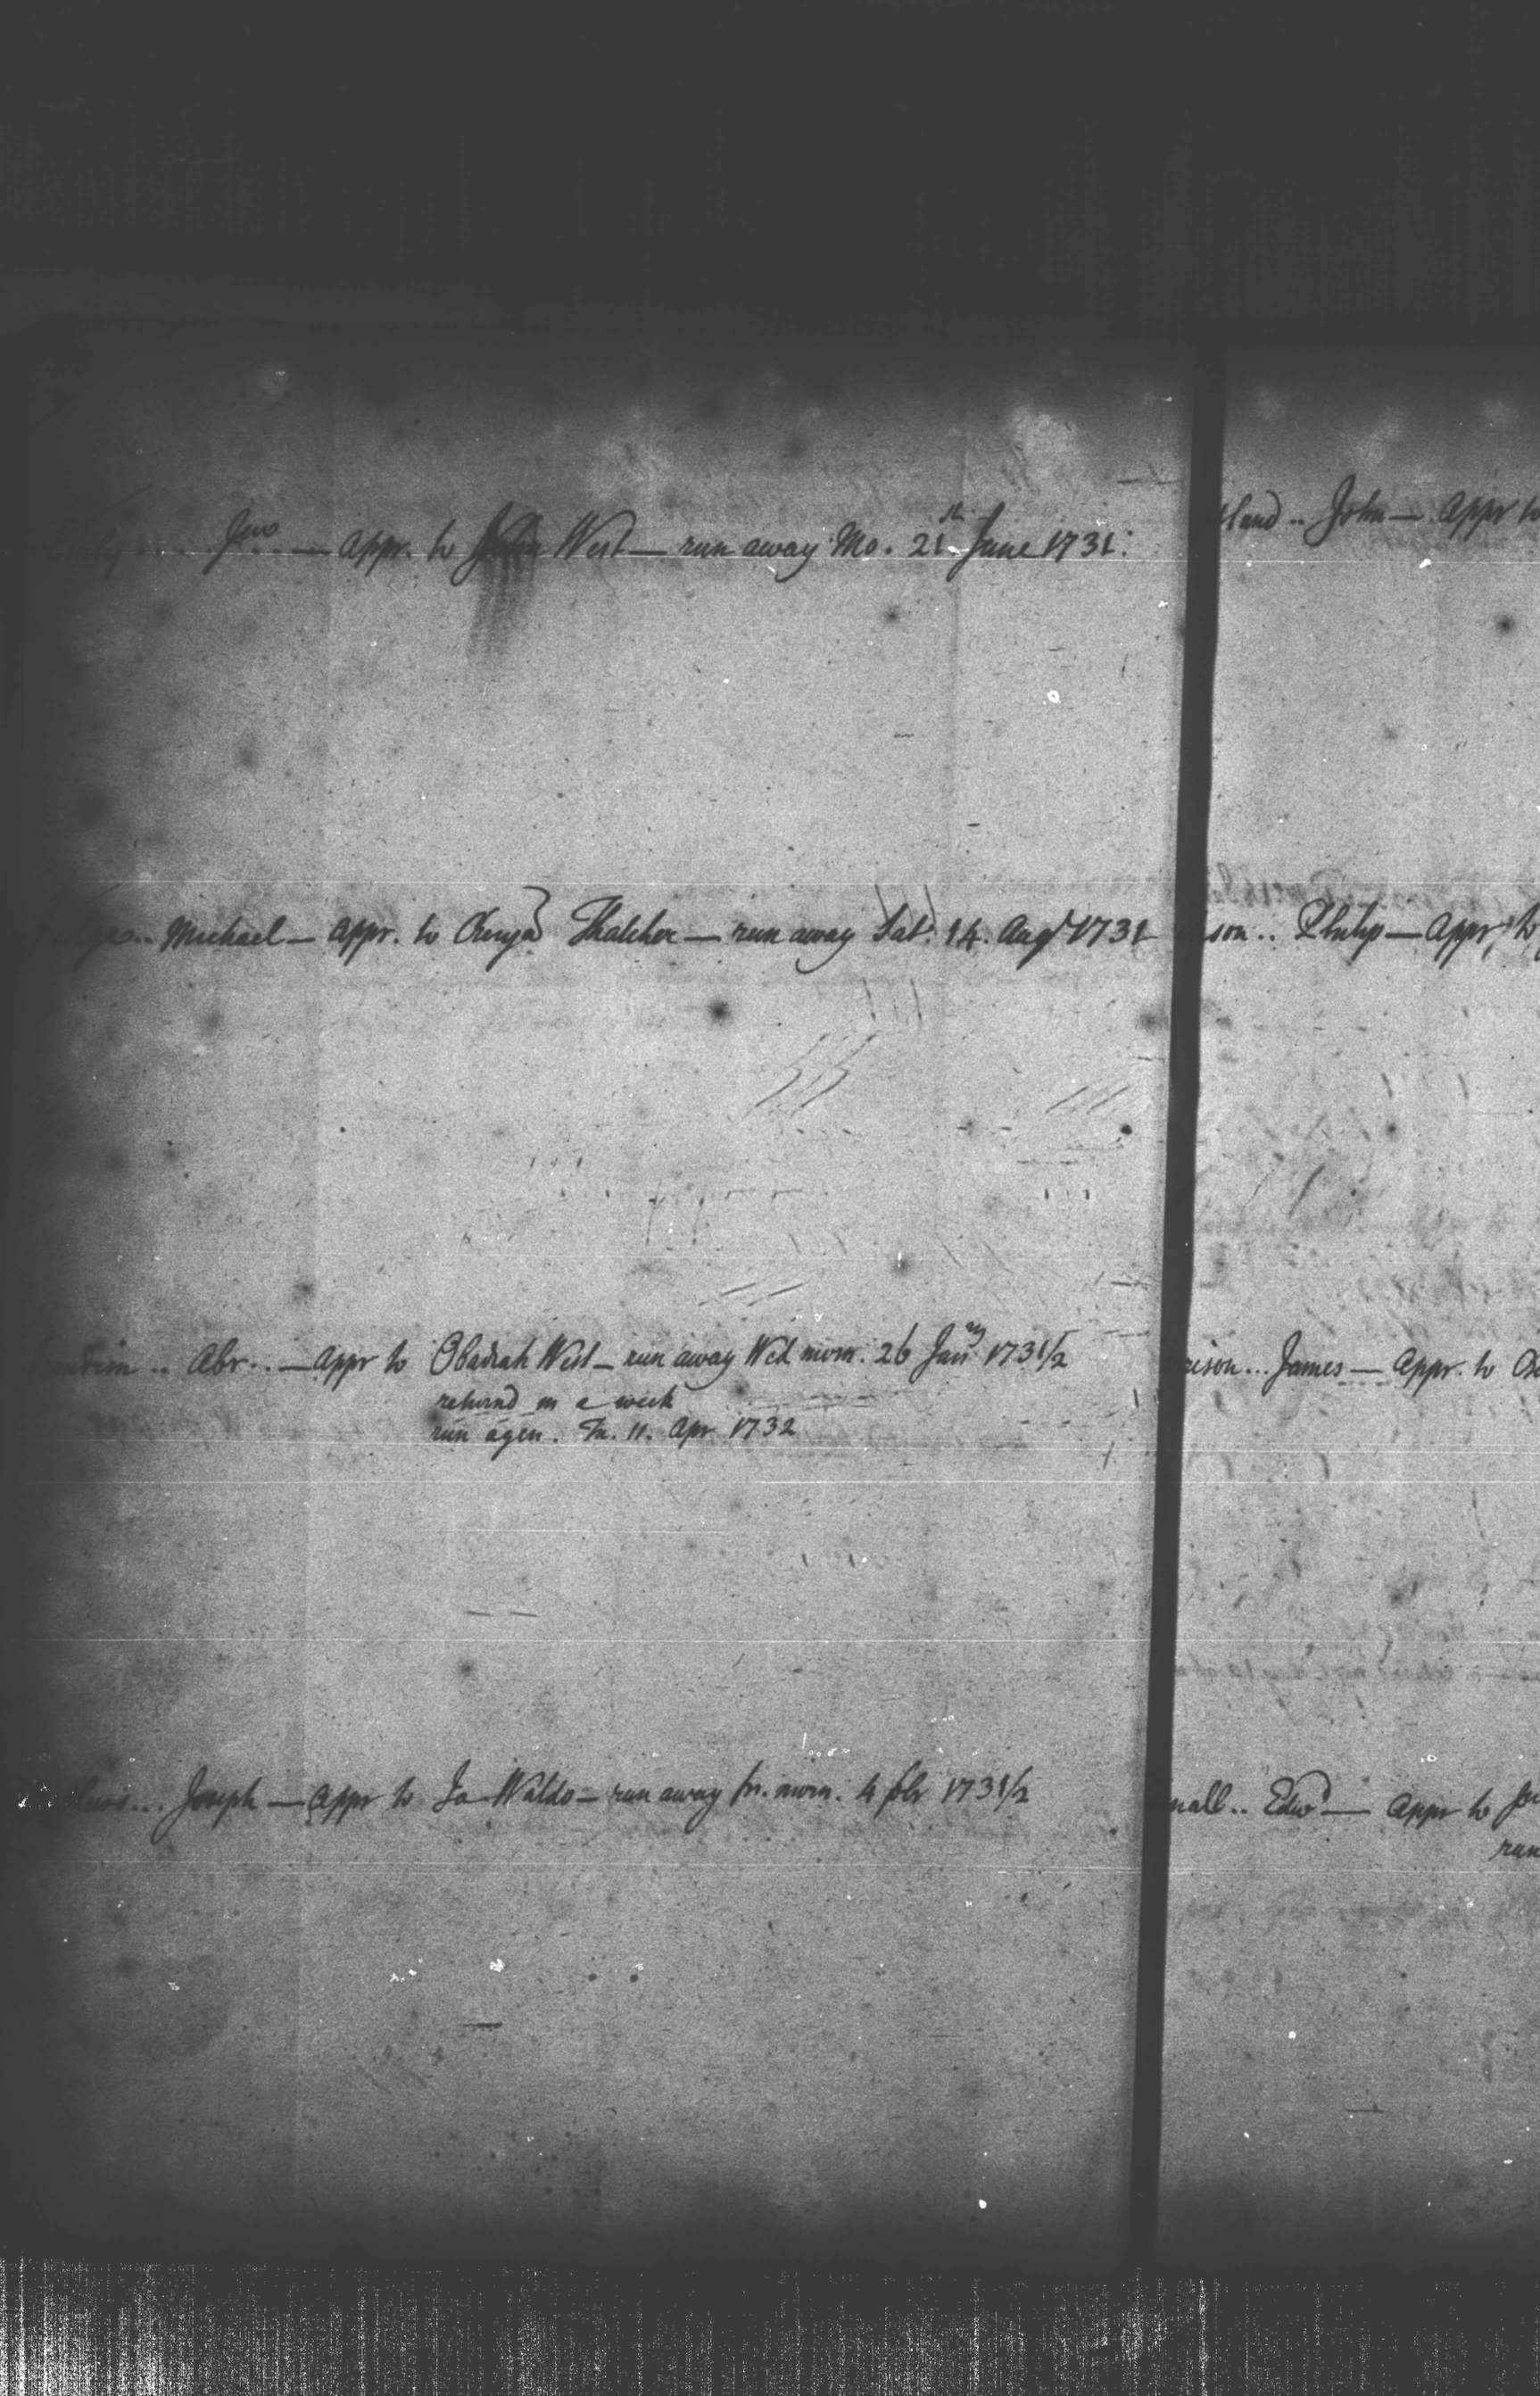 Jno — appr. to John West — run away Mo. 21st June 1731.
Michael — appr. to Thatcher — run away Sat. 14. Augt 1731
Abr. . — appr to Obadiah West — run away Wed morn. 26 Janry 1731/2
returnd in a week
run agen. Tu. 11. Apr 1732
Joseph — appr to Jo Waldo — run away fri. morn. 4 febr 1731/2
land .. John — appr to
son .. Philip — appr. to
ison... James — appr. to
nall .. Edwd — appr to
run